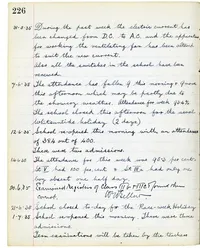 226
During the past week the electric current has
been changed from D.C. to A.C. and the apparatus
for working the ventilating fan has been altered
to suit the new current.
Also all the switches in the school have been
renewed.
The attendance has fallen this morning &
this afternoon which may be partly due to
the showery weather. Attendance for week
The school closed this afternoon for the usual
holiday (2 days)
School re-opened this morning with an attendance
of 384 out of 400.
There were two admissions.
The attendance for this week was per cent.
had 100 per cent. & had only one
boy absent one half day.
Examined Registers of Class & found them
correct.
School closed to-day for the Race-week Holiday
School re-opened this morning. There were three
admissions.
Term examinations will be taken by the teachers